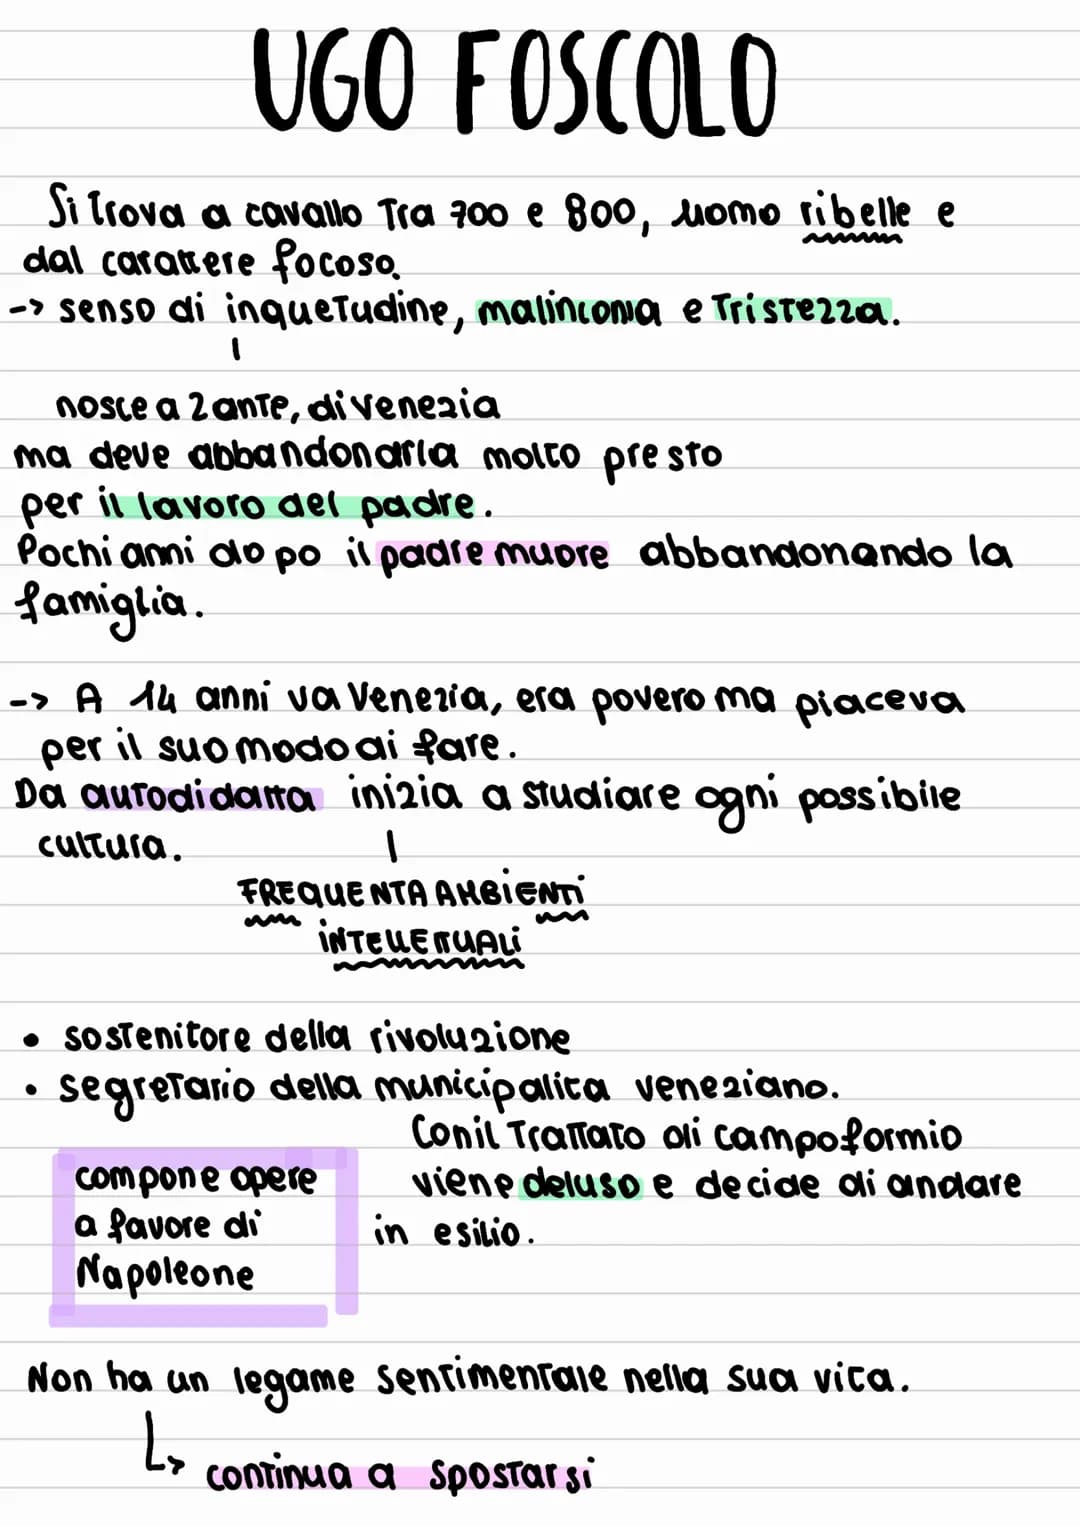 UGO FOSCOLO
Si trova a cavallo tra 700 e 800, uomo ribelle e
dal carattere focoso.
-> senso di inquetudine, malinconia e tristezza.
nasce a Zante, di venezia
ma deve abbandonarla molto presto
per il lavoro del padre.
Pochi anni dopo il padre muore abbandonando la
famiglia.
-> A 14 anni va Venezia, era povero ma piaceva
per il suo modo di fare.
Da autodidatta inizia a studiare ogni possibile
cultura.
FREQUENTA AMBIENTI
INTELLETTUALI
• sostenitore della rivoluzione
• segretario della municipalita veneziano.
Con il Trattato di campoformio
viene deluso e decide di andare
in esilio.
compone opere
a favore di
Napoleone
Non ha un legame sentimentale nella sua vita.
continua a spostarsi